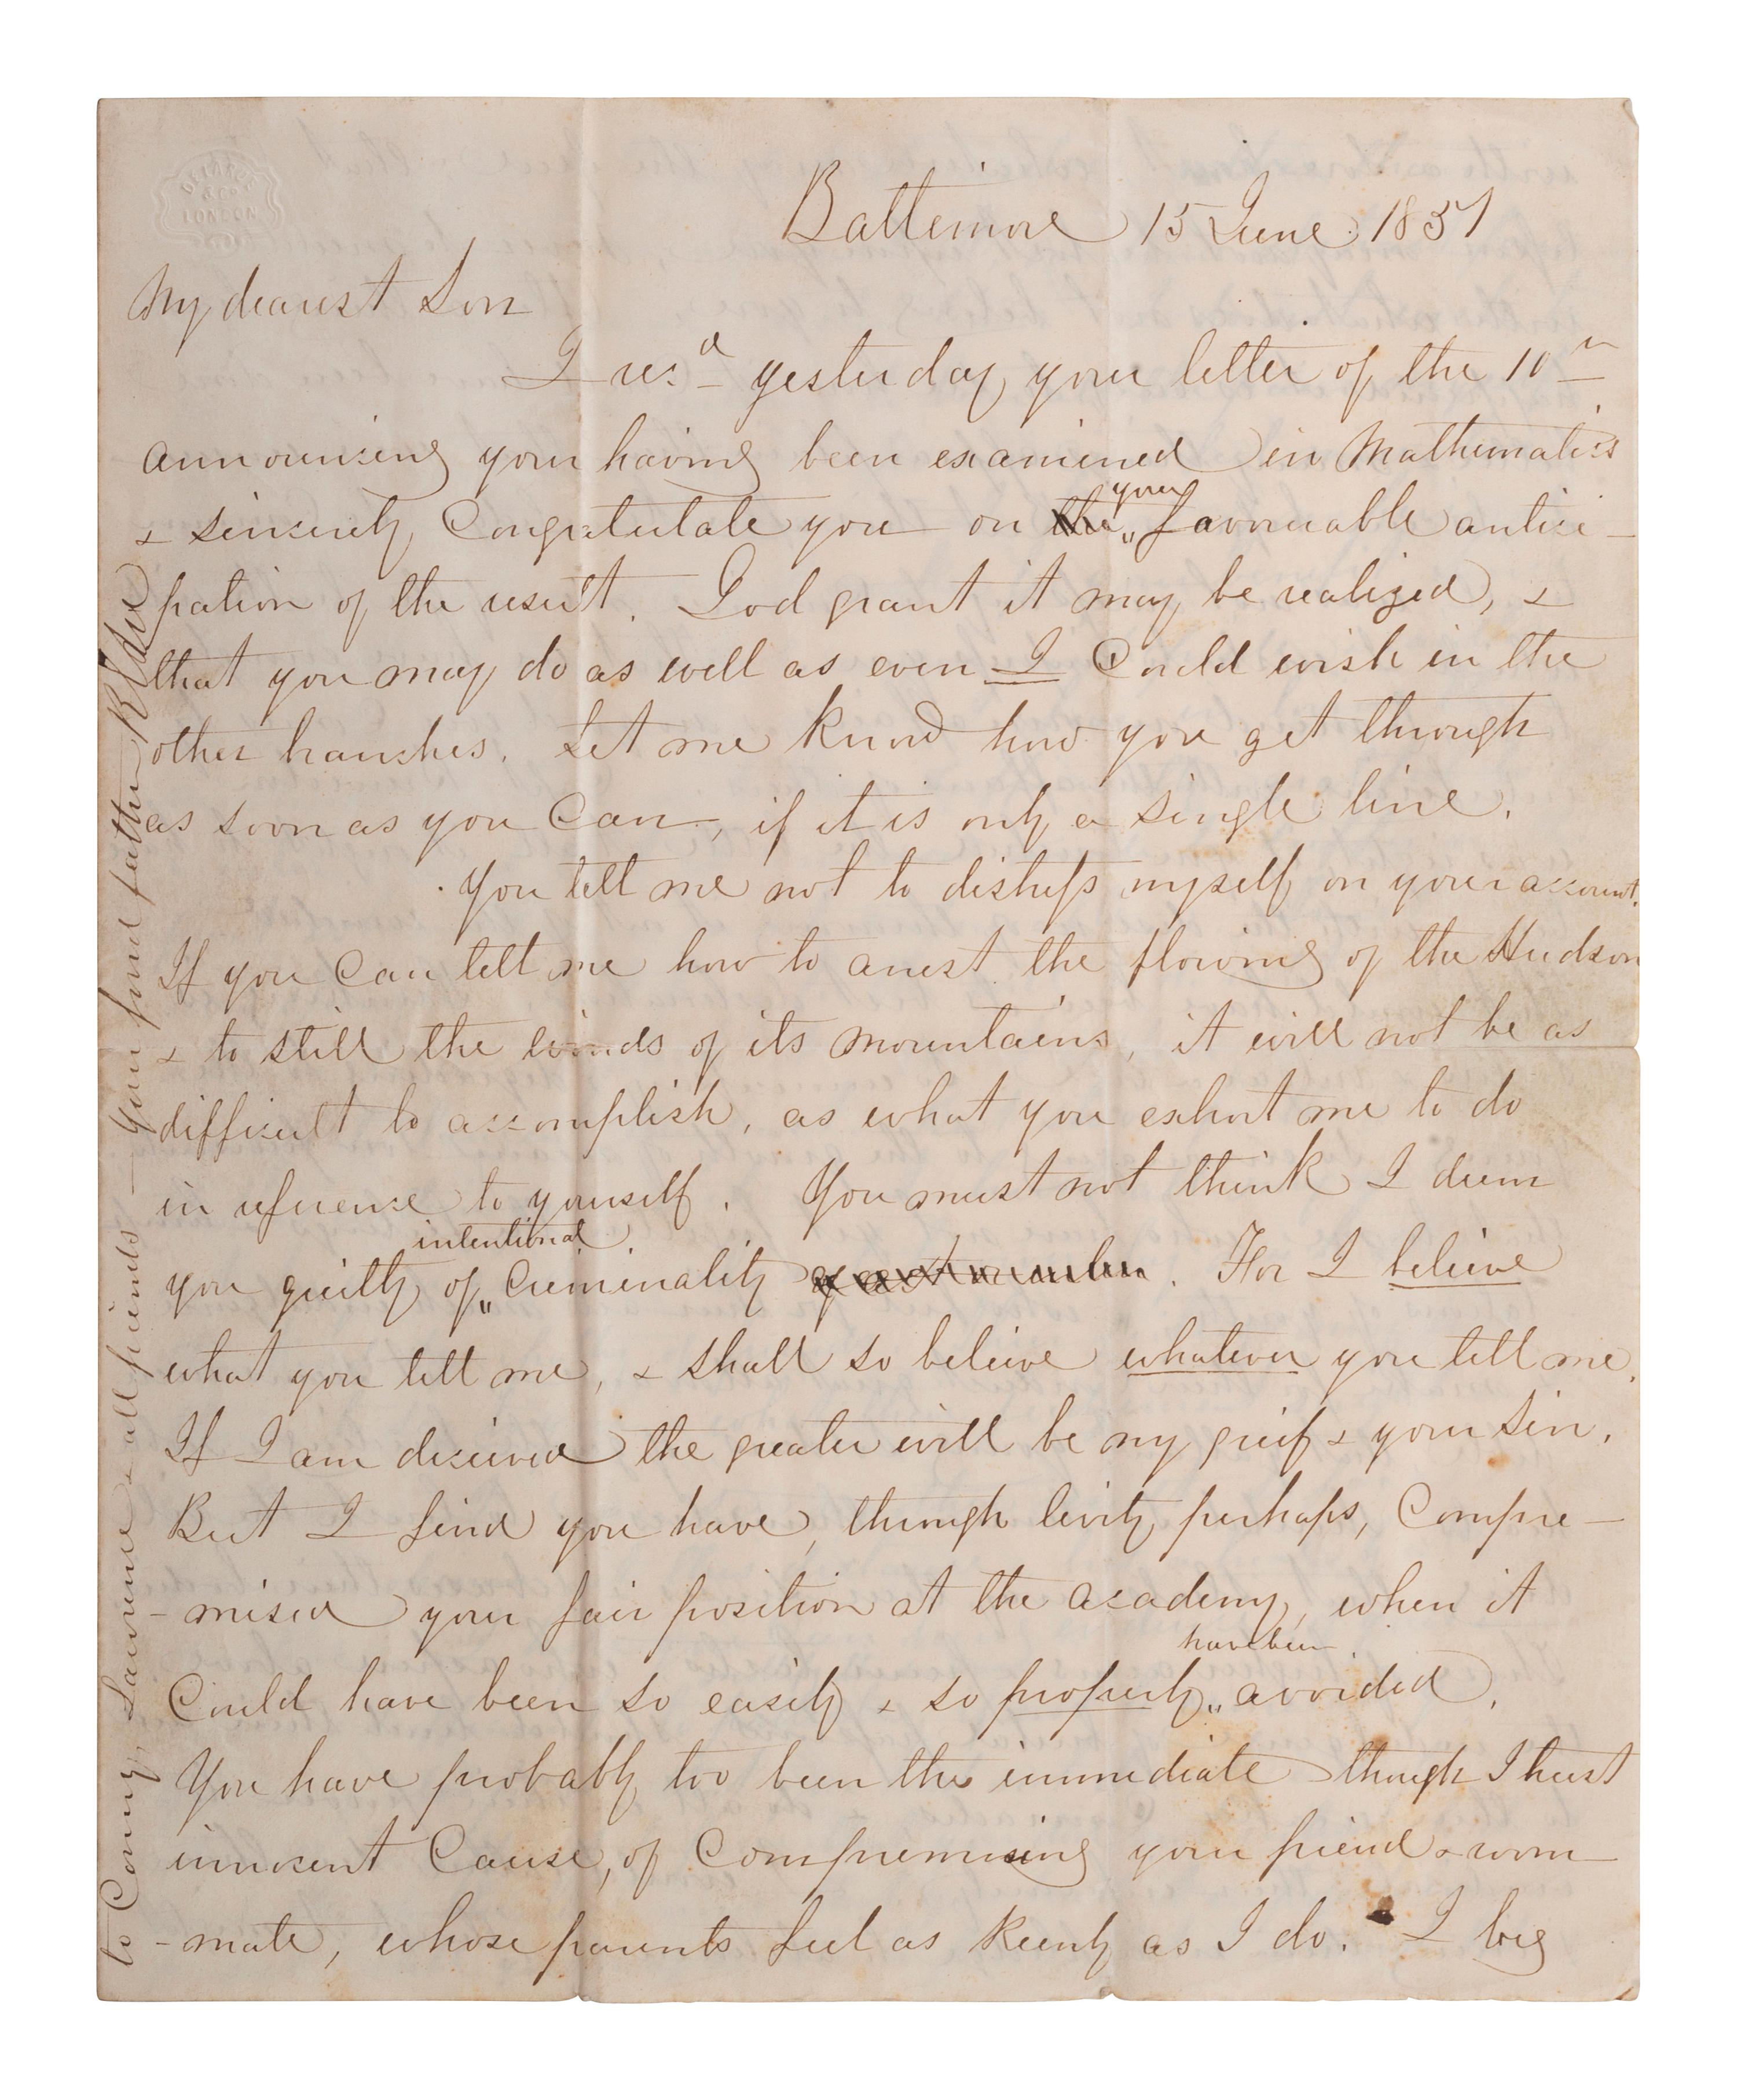 DE LA RUE
& Co
LONDON
Baltimore 15 June 1851
My dearest Son
I recd yesterday your letter of the 10th
announcing your having been examined in Mathematics
& sincerely Congratulate you on the your favourable antici-
pation of the result. God grant it may be realized, &
that you may do as well as even I Could wish in the
other branches. Let me know how you get through
as soon as you Can, if it is only a single line.
You tell me not to distress myself on your account.
If you Can tell me how to arrest the flowing of the Hudson
& to still the winds of its mountains, it will not be as
difficult to accomplish, as what you exhort me to do
in reference to yourself. You must not think I deem
you guilty of intentional Criminality. For I believe
what you tell me, & shall so believe whatever you tell me.
If I am deceived the greater will be my grief & your sin.
But I find you have, through levity perhaps, Compre-
-mised your fair position at the academy, when it
Could have been so easily & so properly have been avoided.
You have probably too been the immediate though I trust
innocent Cause, of Compremising your friend & room
-mate, whose parents feel as keenly as I do. I beg
to Comg, Lawrence & all friends — Your fond father R E Lee